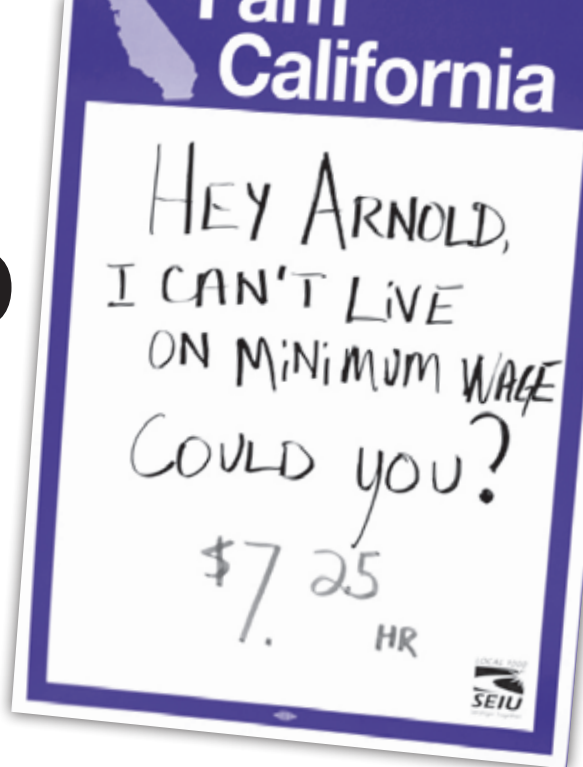 I am
California
HEY ARNOLD,
I CAN'T LIVE
ON MINIMUM WAGE
COULD YOU?
$7.25
HR
LOCAL 1000
SEIU
Stronger Together